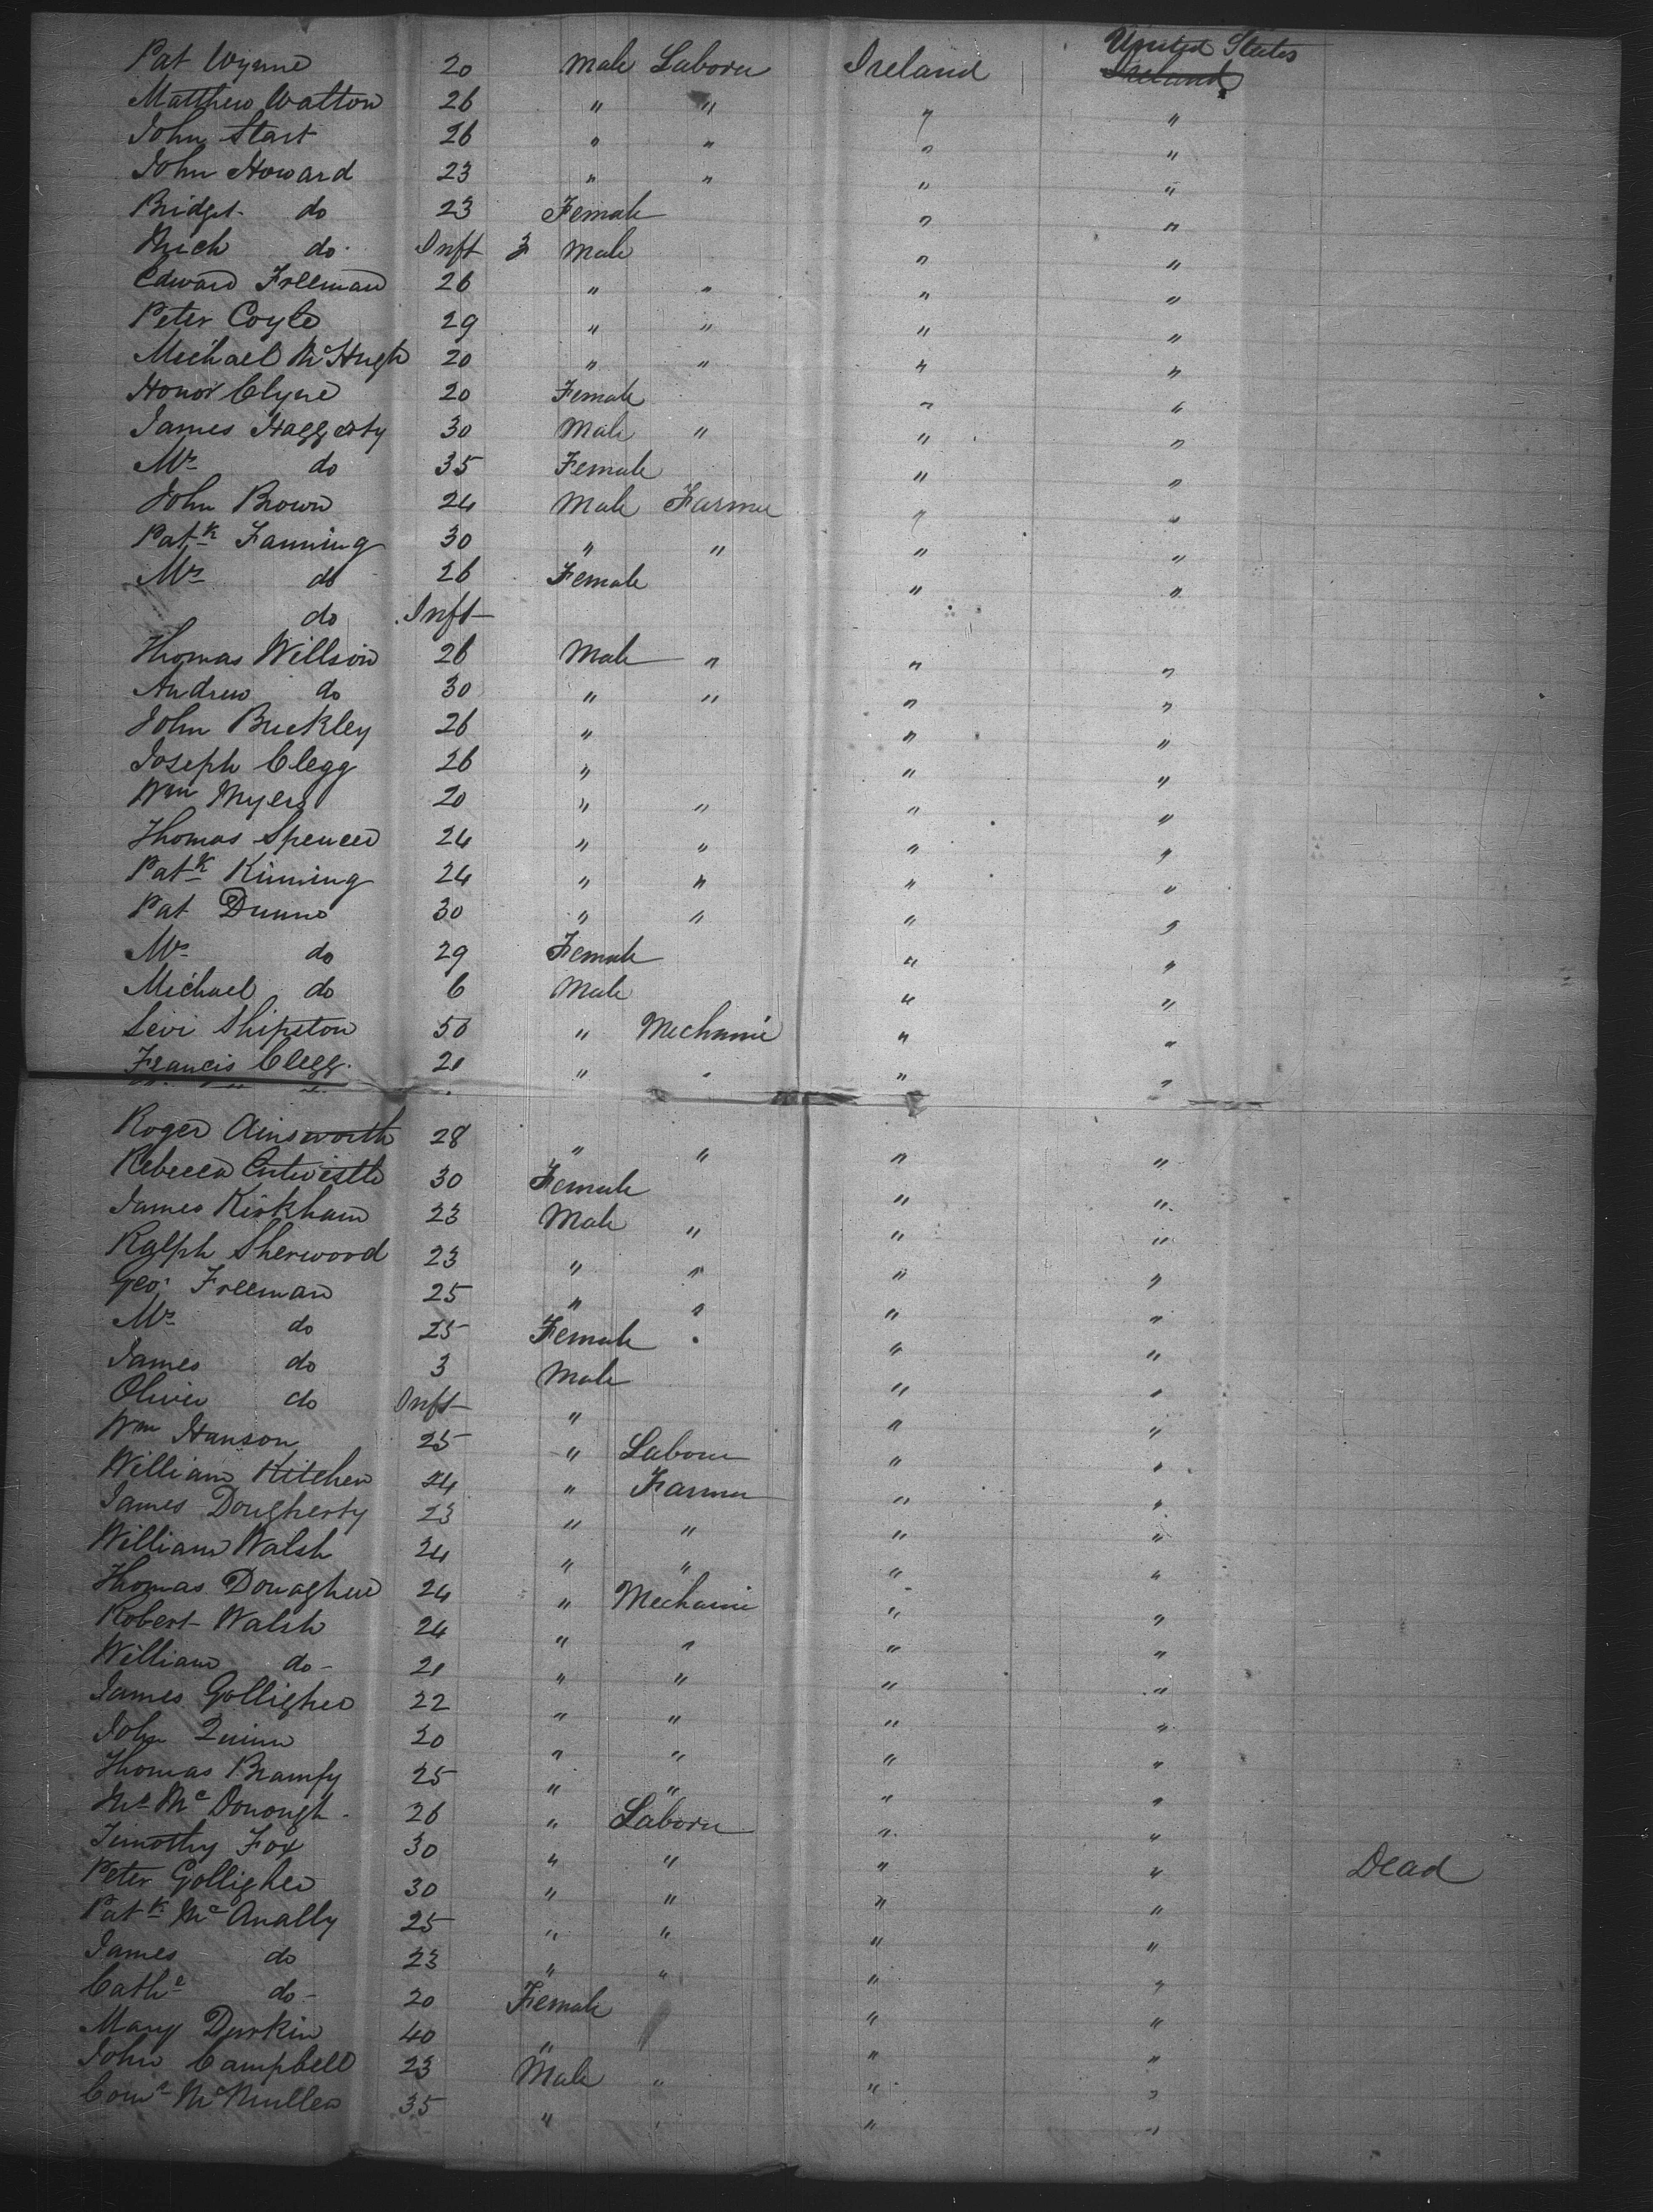 Pat Wynne 20 Male Laborer Ireland United States ~~Ireland~~
Matthew Watton 26 " " " "
John Start 26 " " " "
John Howard 23 " " " "
Bridget do 23 Female " "
Mich do Inft 3 Male " "
Edward Freeman 26 " " " "
Peter Coyle 29 " " " "
Michael McHugh 20 " " " "
Honor Clyne 20 Female " "
James Haggerty 30 Male " " "
Mrs do 35 Female " "
John Brown 24 Male Farmer " "
Patk Fanning 30 " " " "
Mrs do 26 Female " "
do Inft
Thomas Willson 26 Male " " "
Andrew do 30 " " " "
John Buckley 26 " " "
Joseph Clegg 26 " " "
Wm Myers 20 " " " "
Thomas Spencer 24 " " " "
Patk Kinning 24 " " " "
Pat Dunne 30 " " " "
Mrs do 29 Female " "
Michael do 6 Male " "
Levi Shipston 50 " Mechanic " "
Francis Clegg 21 " " " "
Roger Ainsworth 28 " " " "
Rebecca Entwistle 30 Female " "
James Kirkham 23 Male " " "
Ralph Sherwood 23 " " " "
Geo: Freeman 25 " " " "
Mrs do 25 Female " "
James do 3 Male " "
Oliver do Inft " " "
Wm Hanson 25 " Laborer " "
William Kitchen 24 " Farmer " "
James Dougherty 23 " " " "
William Walsh 24 " " " "
Thomas Donaghue 24 " Mechanic " "
Robert Walsh 24 " " " "
William do 21 " " " "
James Golligher 22 " " " "
John Quinn 20 " " " "
Thomas Bramfy 25 " " " "
McDonough 26 " Laborer " "
Timothy Fox 30 " " " " Dead
Peter Golligher 30 " " " "
Patk McAnally 25 " " " "
James do 23 " " " "
Cathe do 20 Female " "
Mary Durkin 40 " " "
John Campbell 23 Male " " "
McMullen 35 " " " "